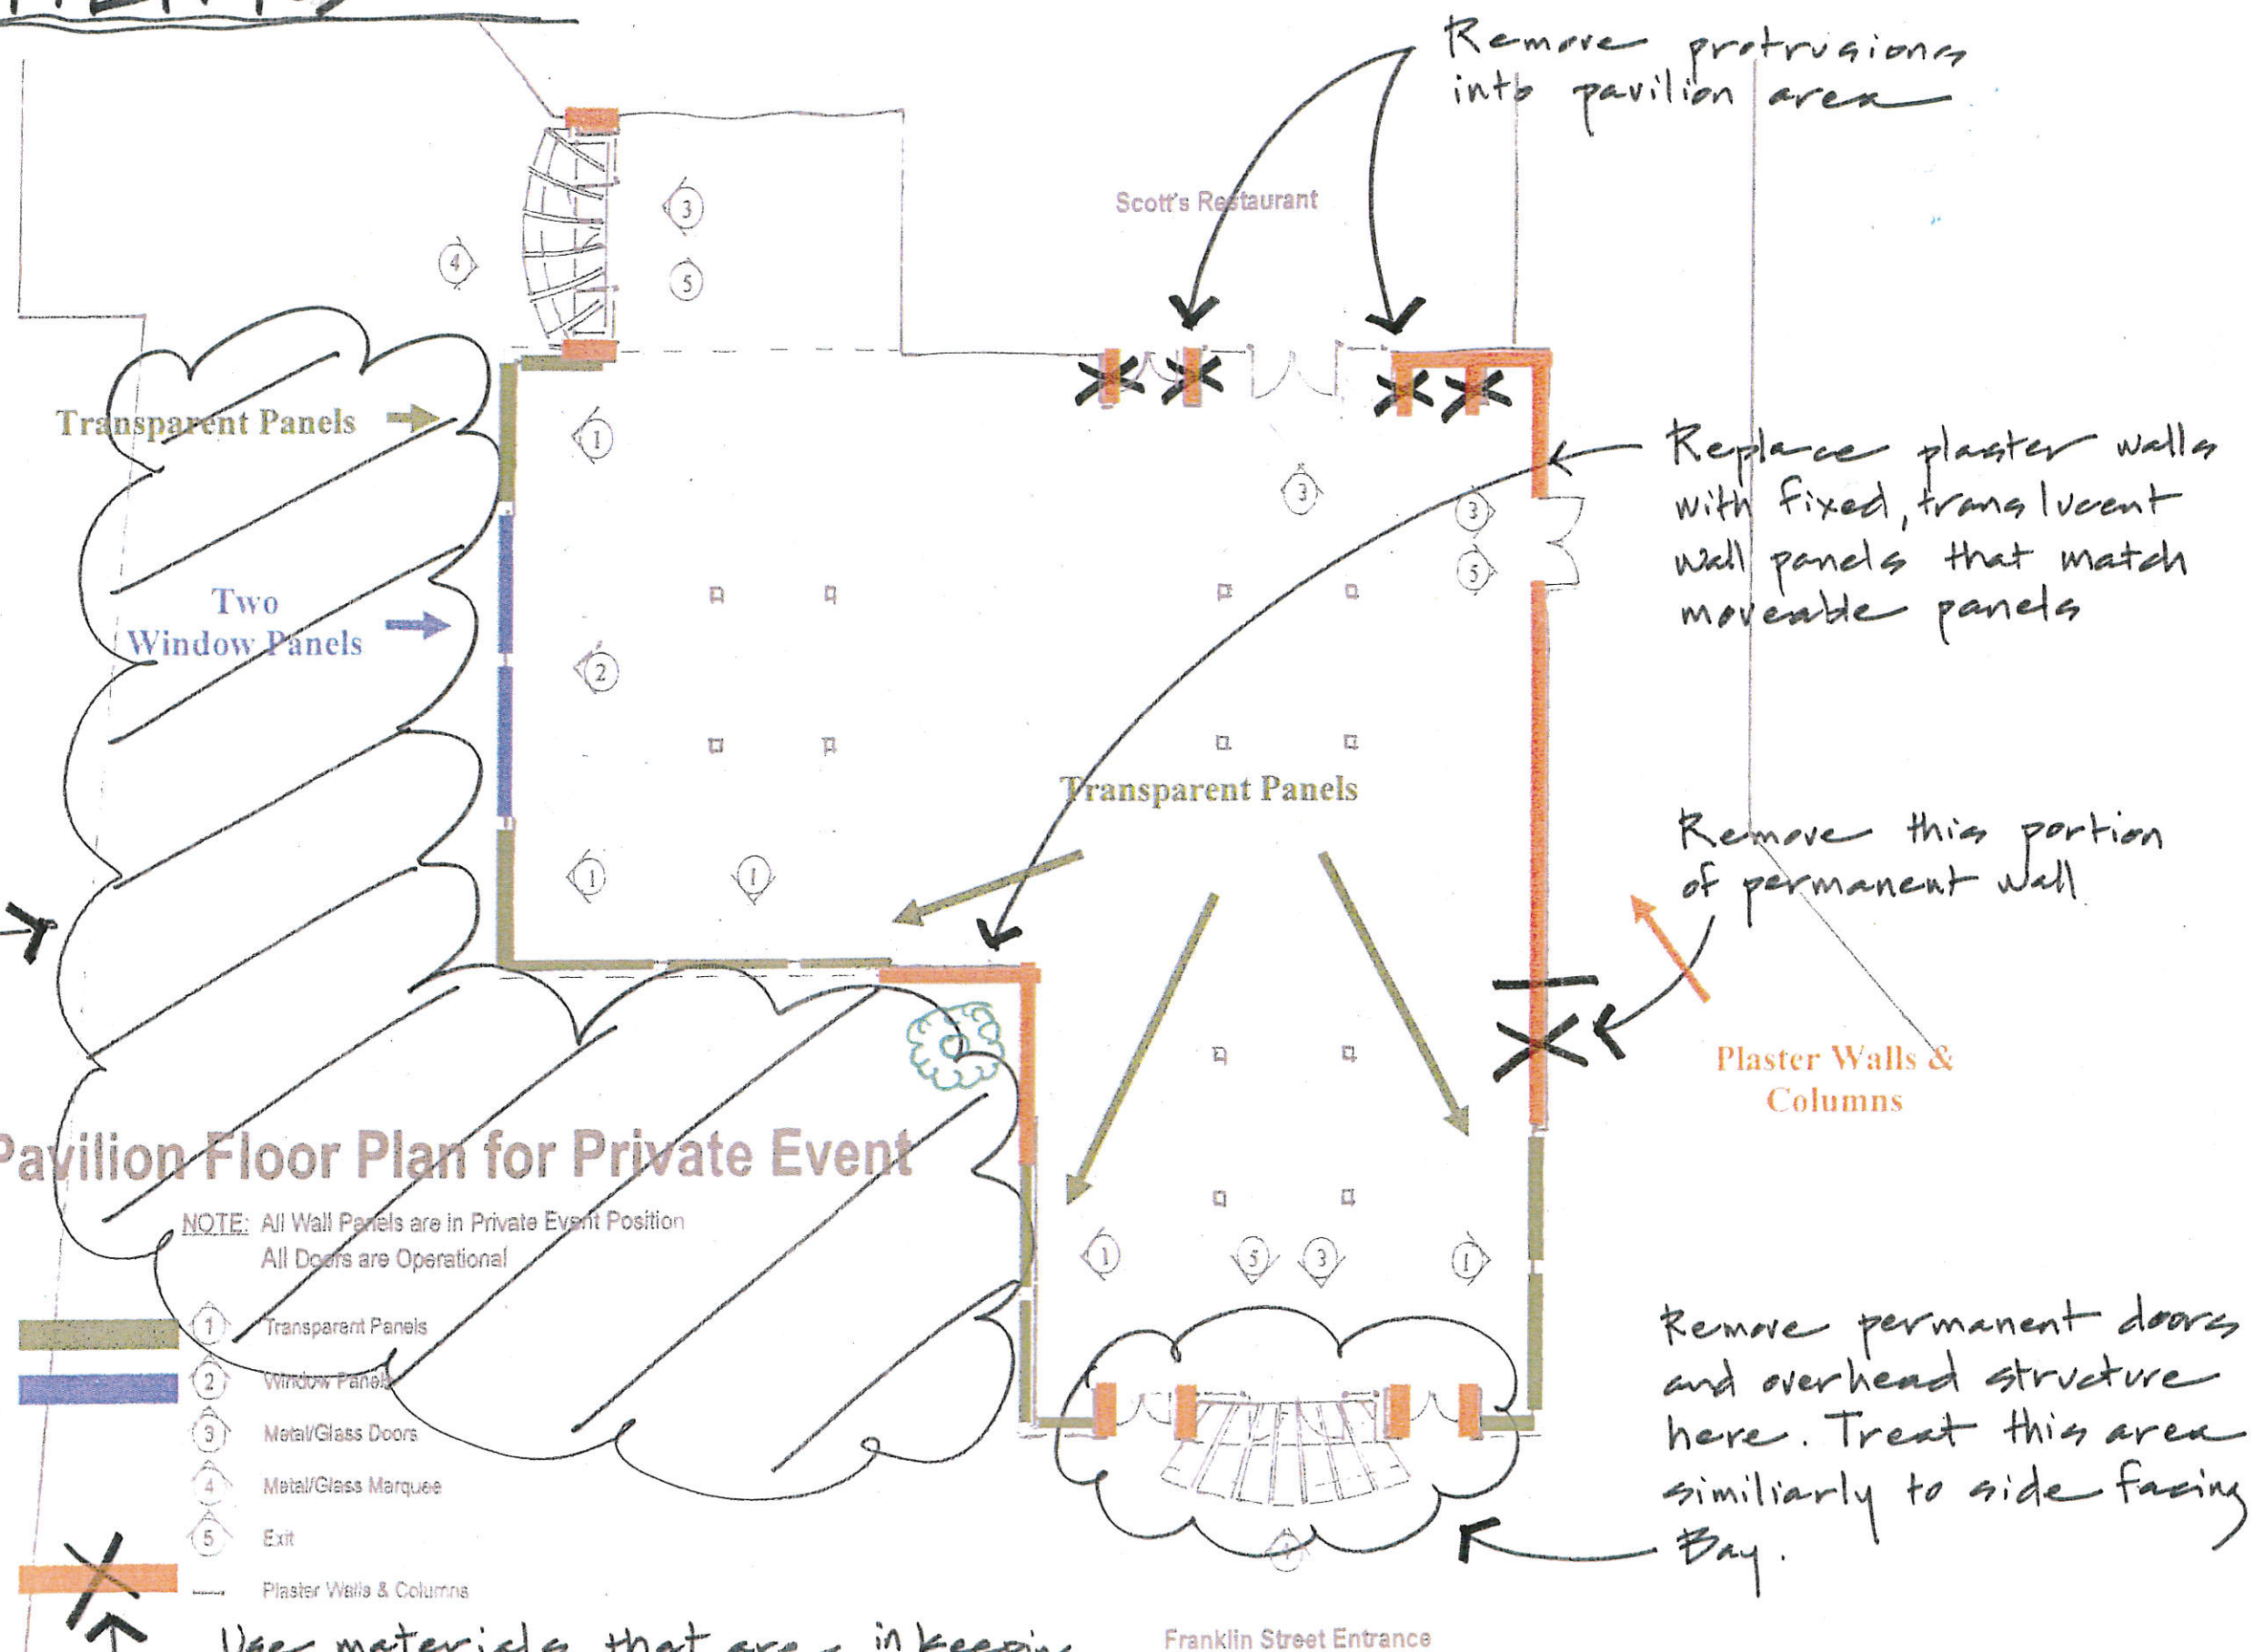 Remove protrusions
into pavilion area
Scott's Restaurant
3
4
5
Transparent Panels
1
3
Replace plaster walls
with fixed, translucent
wall panels that match
moveable panels
3
5
Two
Window Panels
2
Transparent Panels
Remove this portion
of permanent wall
1
1
Plaster Walls &
Columns
Pavilion Floor Plan for Private Event
NOTE: All Wall Panels are in Private Event Position
All Doors are Operational
1
5
3
1
1 Transparent Panels
2 Window Panels
3 Metal/Glass Doors
4 Metal/Glass Marquee
5 Exit
Plaster Walls & Columns
Remove permanent doors
and overhead structure
here. Treat this area
similiarly to side facing
Bay.
4
Use materials that are in keeping
Franklin Street Entrance